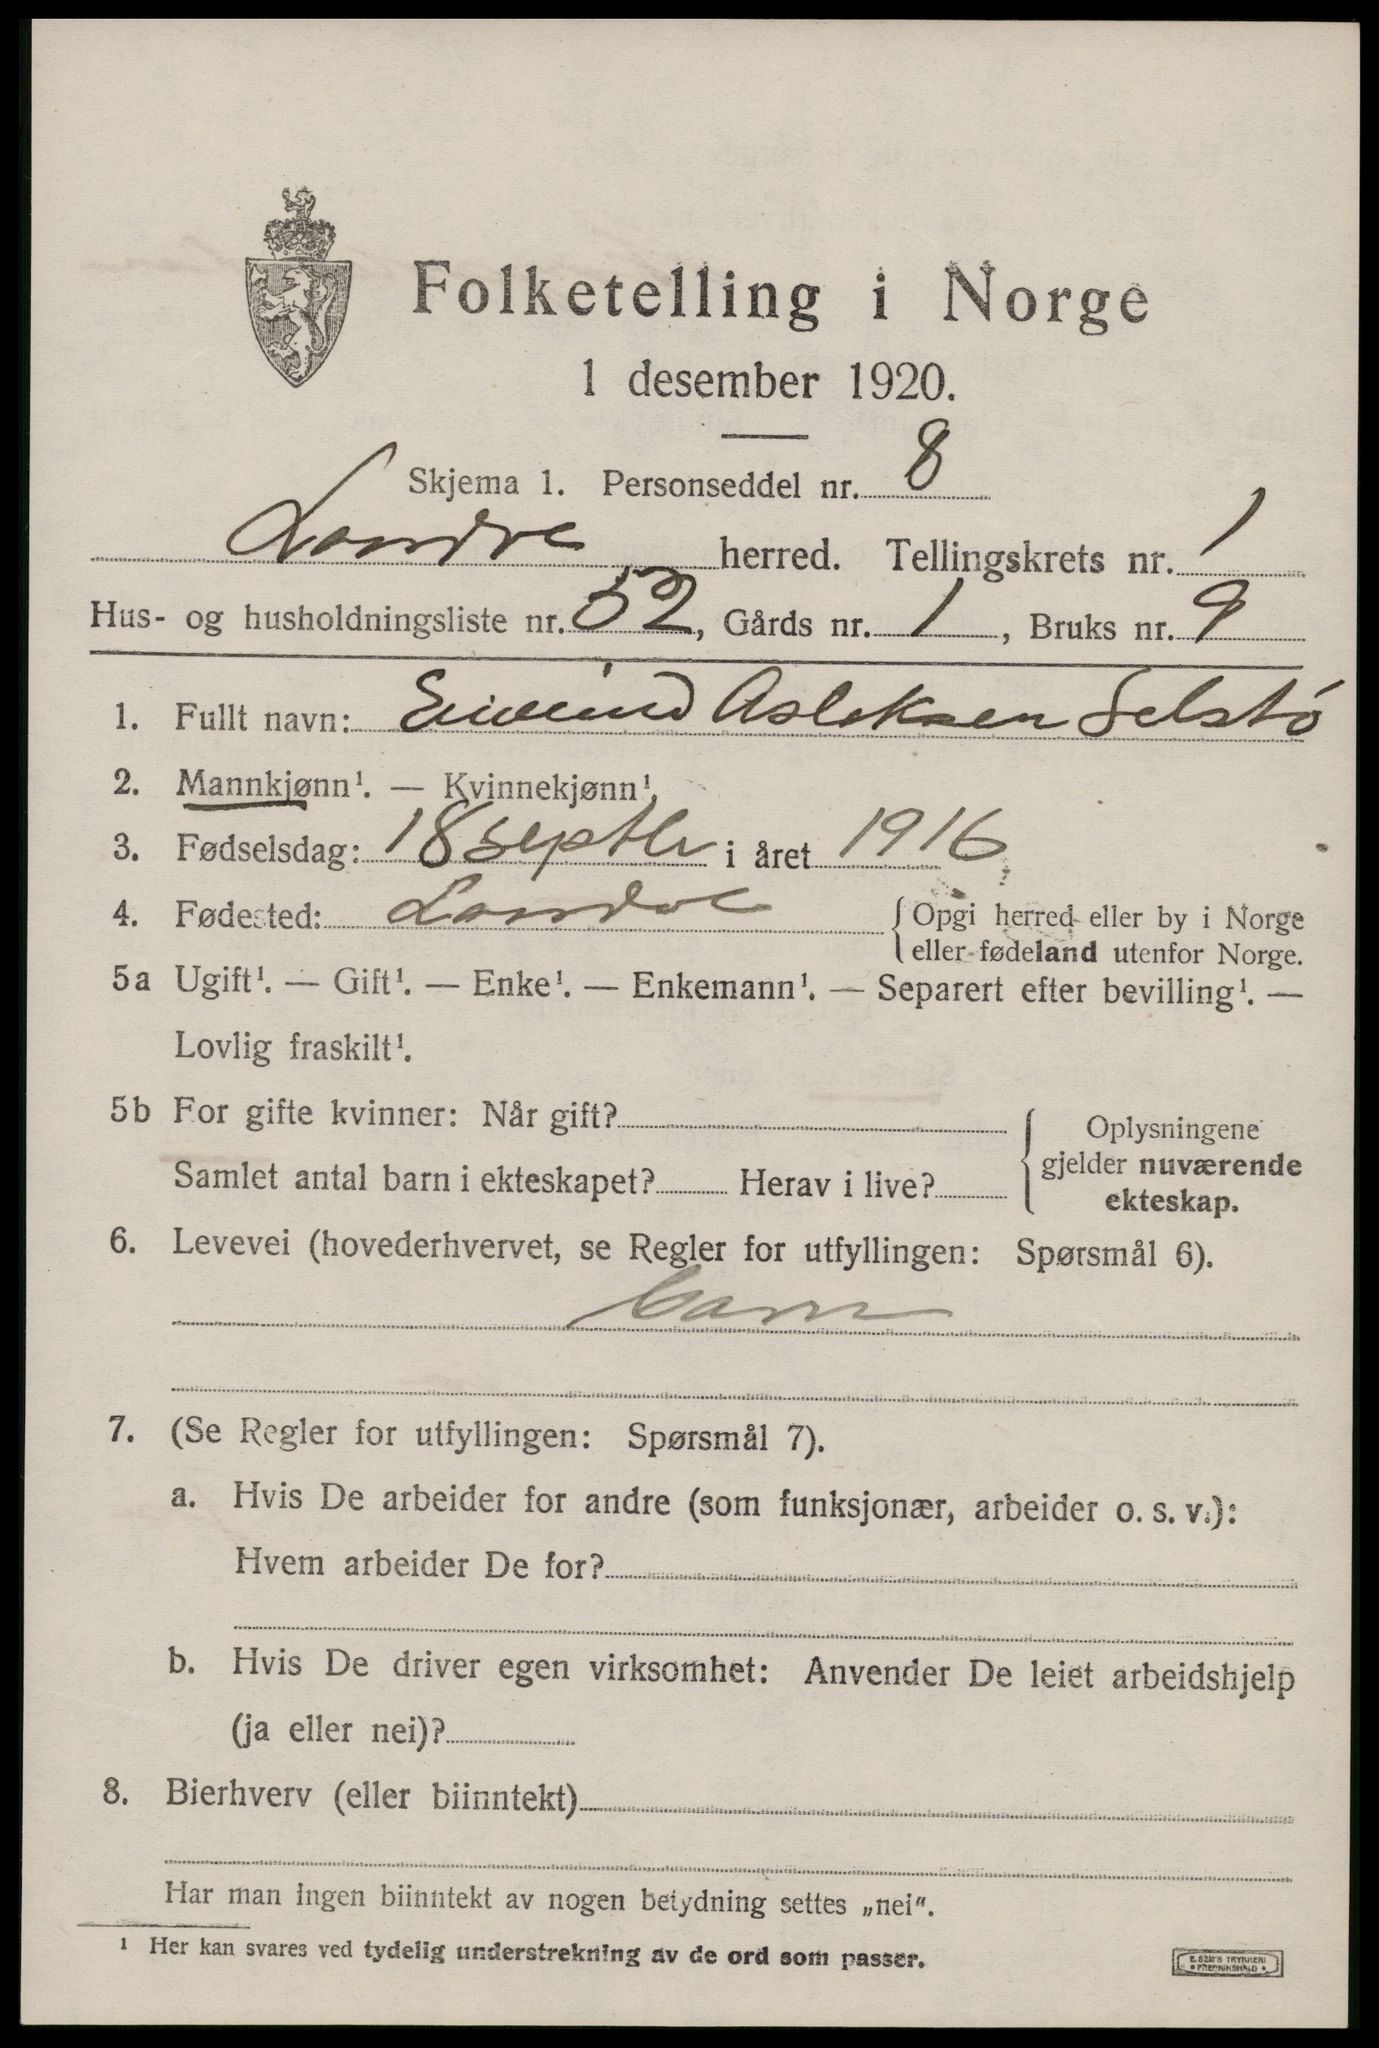 Folketelling i Norge
1 desember 1920.
Skjema 1. Personseddel nr. 8
herred. Tellingskrets nr. 1
Hus- og husholdningsliste nr. 52, Gårds nr. 1, Bruks nr. 9
1. Fullt navn: Eivind Asleksen Selstø
2. Mannkjønn¹. — Kvinnekjønn¹.
3. Fødselsdag: 18 septbr i året 1916
4. Fødested: {Opgi herred eller by i Norge
eller fødeland utenfor Norge.
5a Ugift¹. — Gift¹. — Enke¹. — Enkemann¹. — Separert efter bevilling¹. —
Lovlig fraskilt¹.
5b For gifte kvinner: Når gift? { Oplysningene
Samlet antal barn i ekteskapet? Herav i live? gjelder nuværende
ekteskap.
6. Levevei (hovederhvervet, se Regler for utfyllingen: Spørsmål 6).
barn
7. (Se Regler for utfyllingen: Spørsmål 7).
a. Hvis De arbeider for andre (som funksjonær, arbeider o. s. v.):
Hvem arbeider De for?
b. Hvis De driver egen virksomhet: Anvender De leiet arbeidshjelp
(ja eller nei)?
8. Bierhverv (eller biinntekt)
Har man ingen biinntekt av nogen betydning settes „nei“.
¹ Her kan svares ved tydelig understrekning av de ord som passer.
E. SEM'S TRYKKERI
• FREDRIKSHALD •